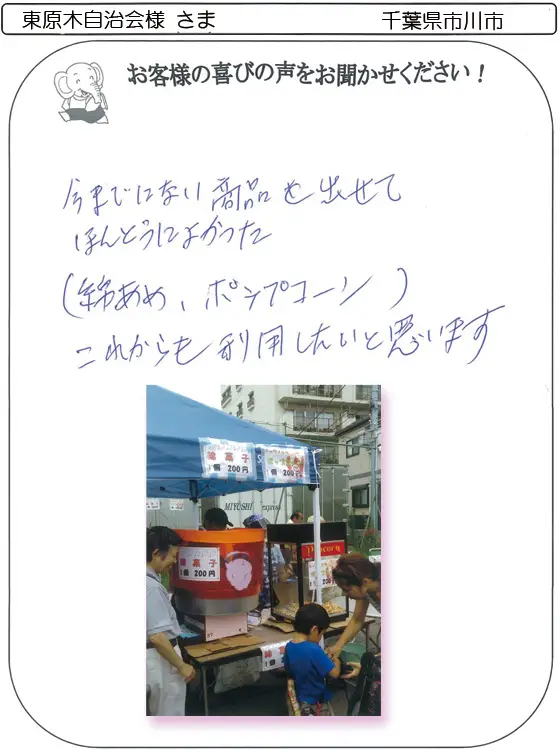 東原木自治会様 さま 千葉県市川市
お客様の喜びの声をお聞かせください！
今までにない商品を出せて
ほんとうによかった
(綿あめ、ポップコーン)
これからも利用したいと思います
綿菓子
1個 200円
1個 200円
MIYOSHI express
綿菓子
1個 200円
POPCORN
200円
綿